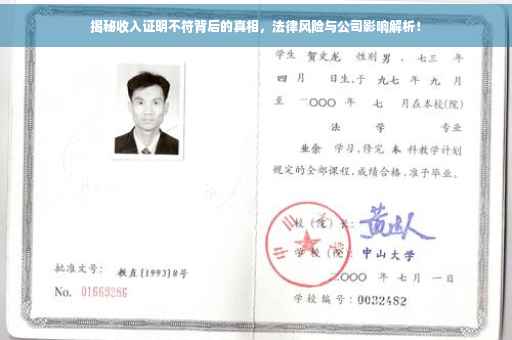 揭秘收入证明不符背后的真相，法律风险与公司影响解析！
学生 贺文龙 性别 男，七三 年
四 月 日生，于 九七 年 九 月
至 二〇〇〇 年 七 月在本校（院）
法 学 专业
业余 学习，修完 本 科教学计划
规定的全部课程，成绩合格，准予毕业。
校（院）长：
学校（院）：中山大学
二〇〇〇 年 七 月 一 日
批准文号： 教直[1993]8号
No. 01669286
学校编号：0032482